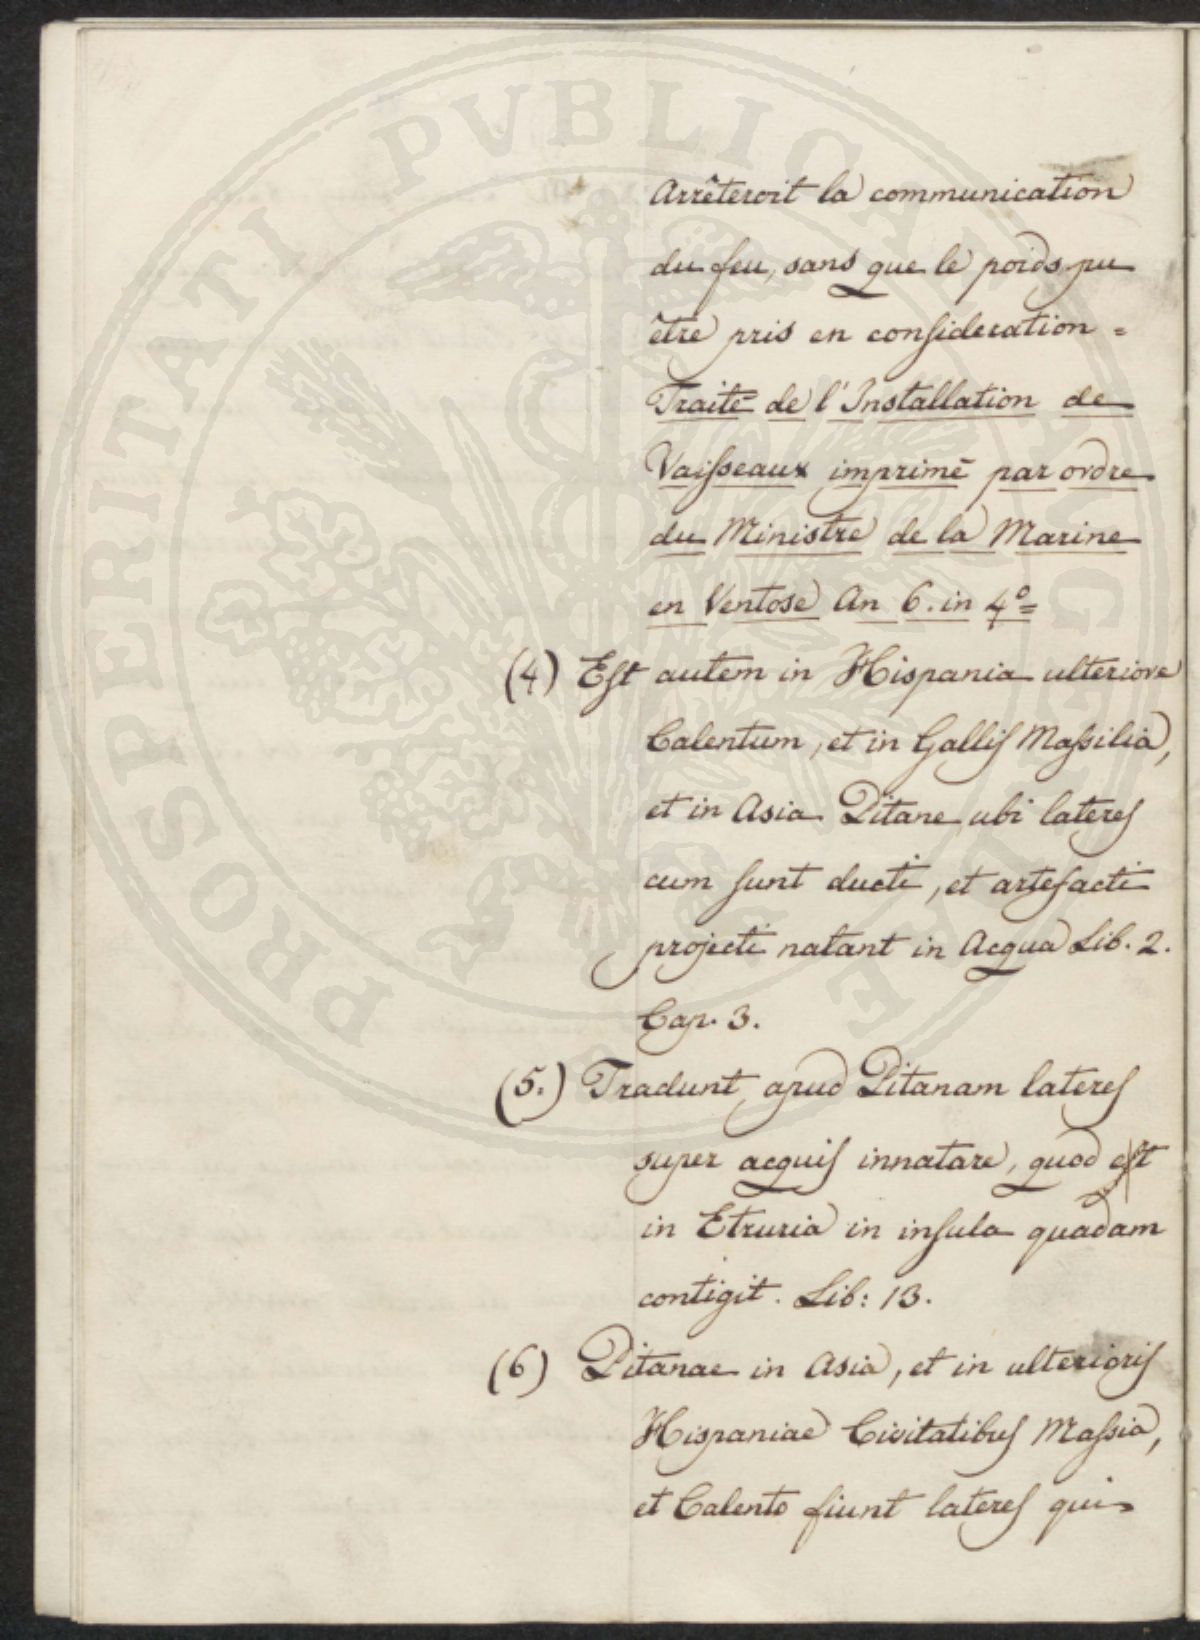 PROSPERITATI PVBLICAE AVGENDAE
Arrêteroit la communication
du feu, sans que le poids pu
être pris en consideration =
Traité de l'Installation de
Vaisseaux imprimé par ordre
du Ministre de la Marine
en Ventose An 6. in 4º
(4) Est autem in Hispania ulteriore
Calentum, et in Gallis Massilia,
et in Asia Pitane ubi lateres
cum sunt ducti, et artefacti
projecti natant in Acqua Lib. 2.
Cap. 3.
(5.) Tradunt apud Pitanam lateres
super acquis innatare, quod est
in Etruria in insula quadam
contigit. Lib: 13.
(6) Pitanae in Asia, et in ulterioris
Hispaniae Civitatibus Massia,
et Calento fiunt lateres qui